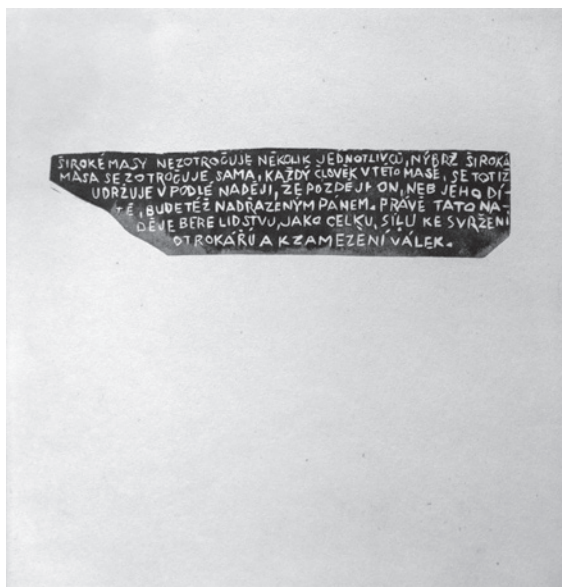 ŠIROKÉ MASY NEZOTROČUJE NĚKOLIK JEDNOTLIVCŮ, NÝBRŽ ŠIROKÁ
MASA SE ZOTROČUJE, SAMA, KAŽDÝ ČLOVĚK V TÉTO MASE, SE TOTIŽ
UDRŽUJE V PODLÉ NADĚJI, ŽE POZDĚJI ON, NEB JEHO DÍ-
TĚ, BUDE TÉŽ NADŘAZENÝM PÁNEM. PRÁVĚ TATO NA-
DĚJE BERE LIDSTVU, JAKO CELKU, SÍLU KE SVRŽENÍ
OTROKÁŘŮ A K ZAMEZENÍ VÁLEK.